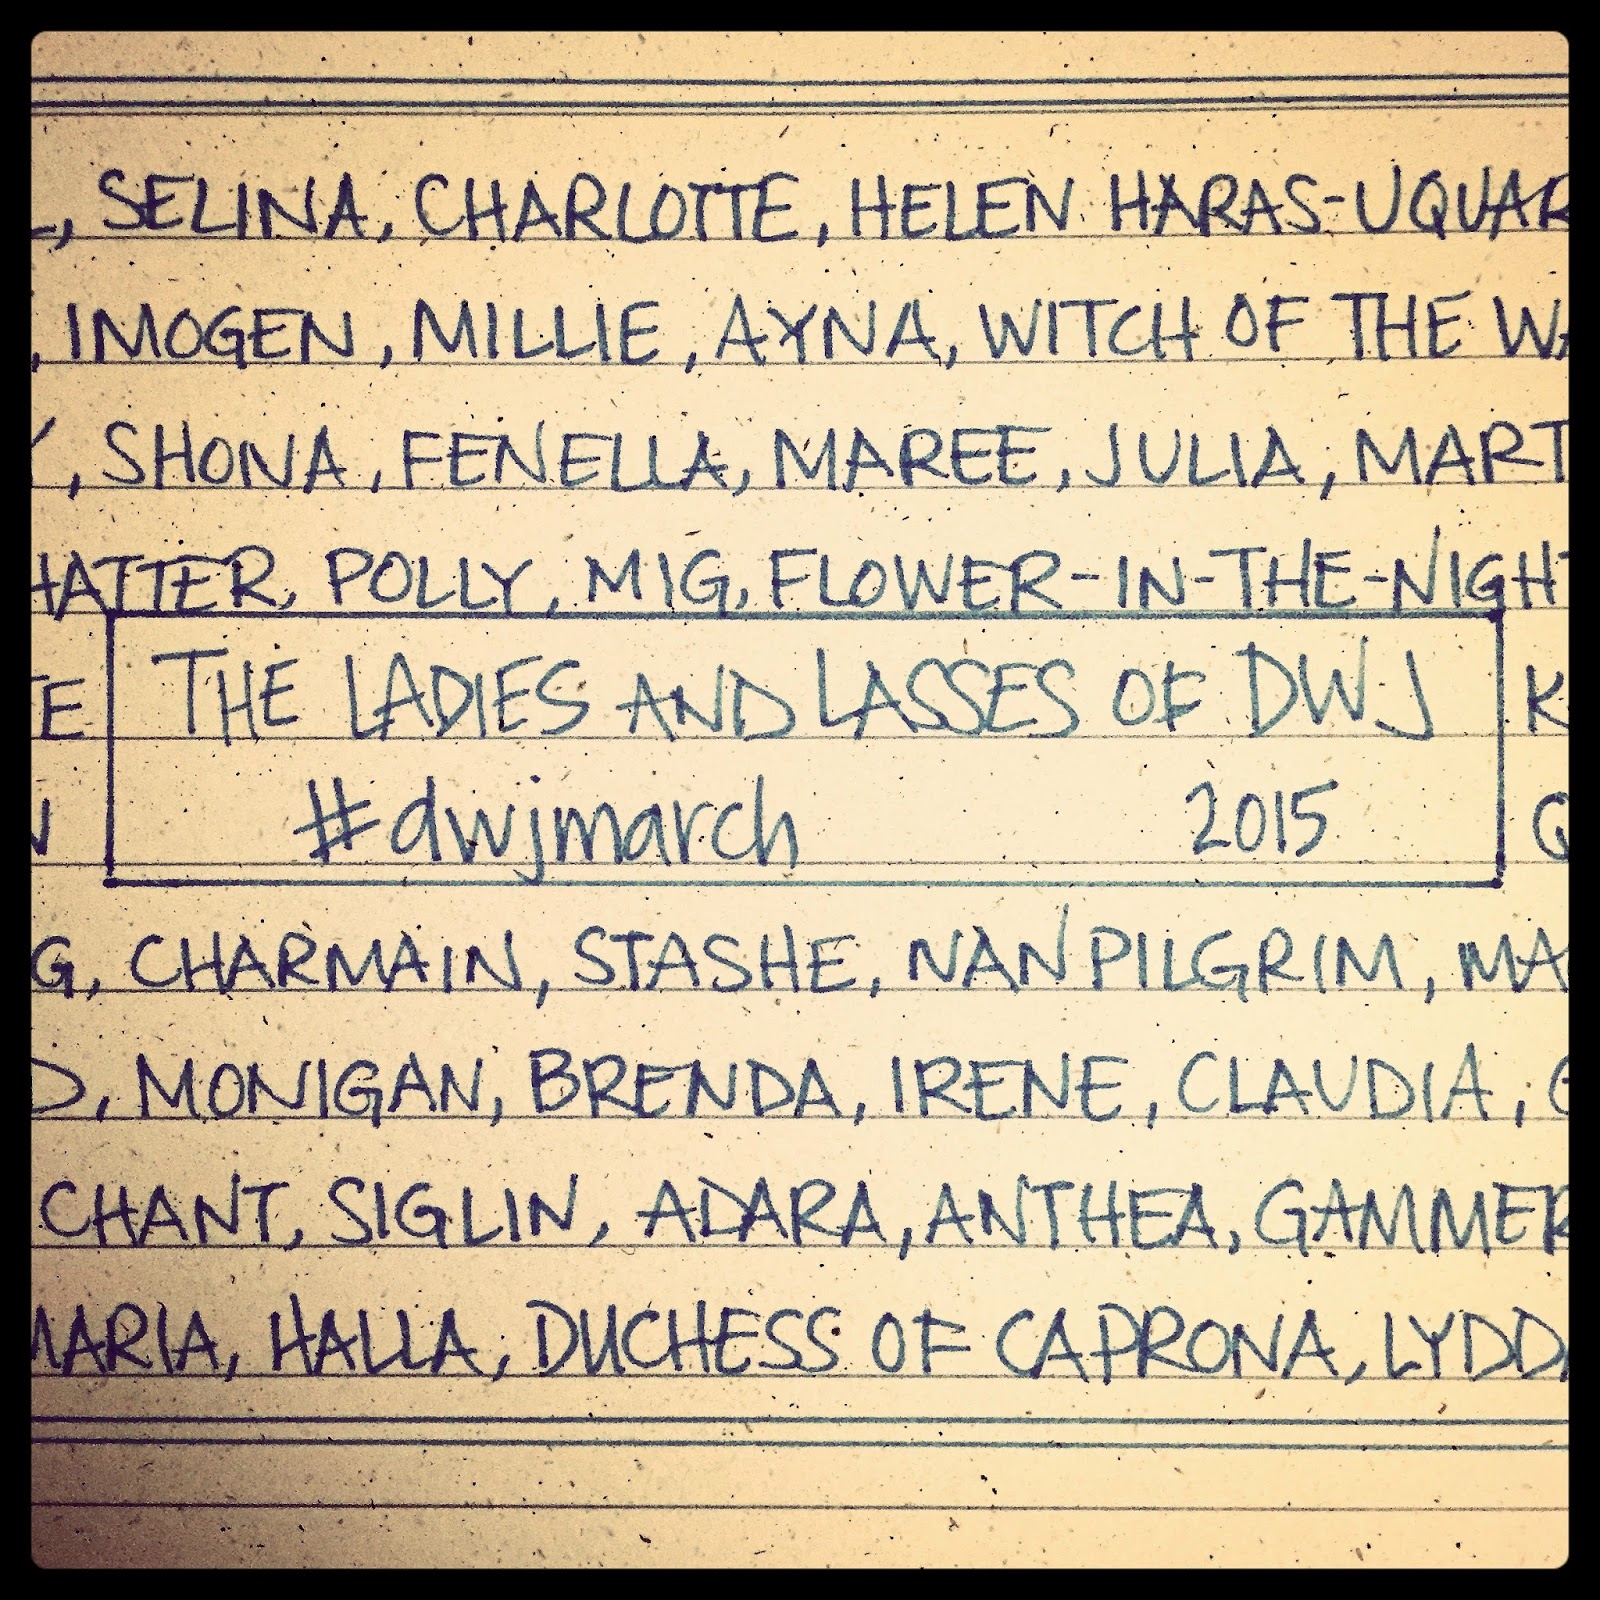 , SELINA, CHARLOTTE, HELEN HARAS-UQUAR
, IMOGEN, MILLIE, AYNA, WITCH OF THE WA
Y, SHONA, FENELLA, MAREE, JULIA, MART
HATTER, POLLY, MIG, FLOWER-IN-THE-NIGHT
TE THE LADIES AND LASSES OF DWJ K
N #dwjmarch 2015 Q
G, CHARMAIN, STASHE, NAN PILGRIM, MA
D, MONIGAN, BRENDA, IRENE, CLAUDIA, G
CHANT, SIGLIN, ADARA, ANTHEA, GAMMER
MARIA, HALLA, DUCHESS OF CAPRONA, LYDDA